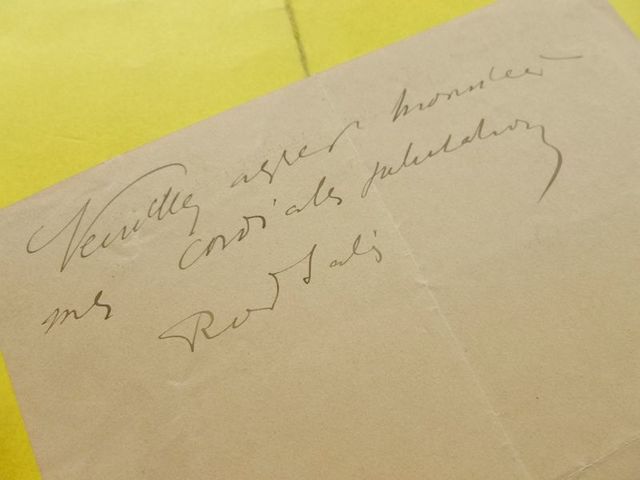 Veuillez agréer Monsieur
mes cordiales salutations
Rod Salis